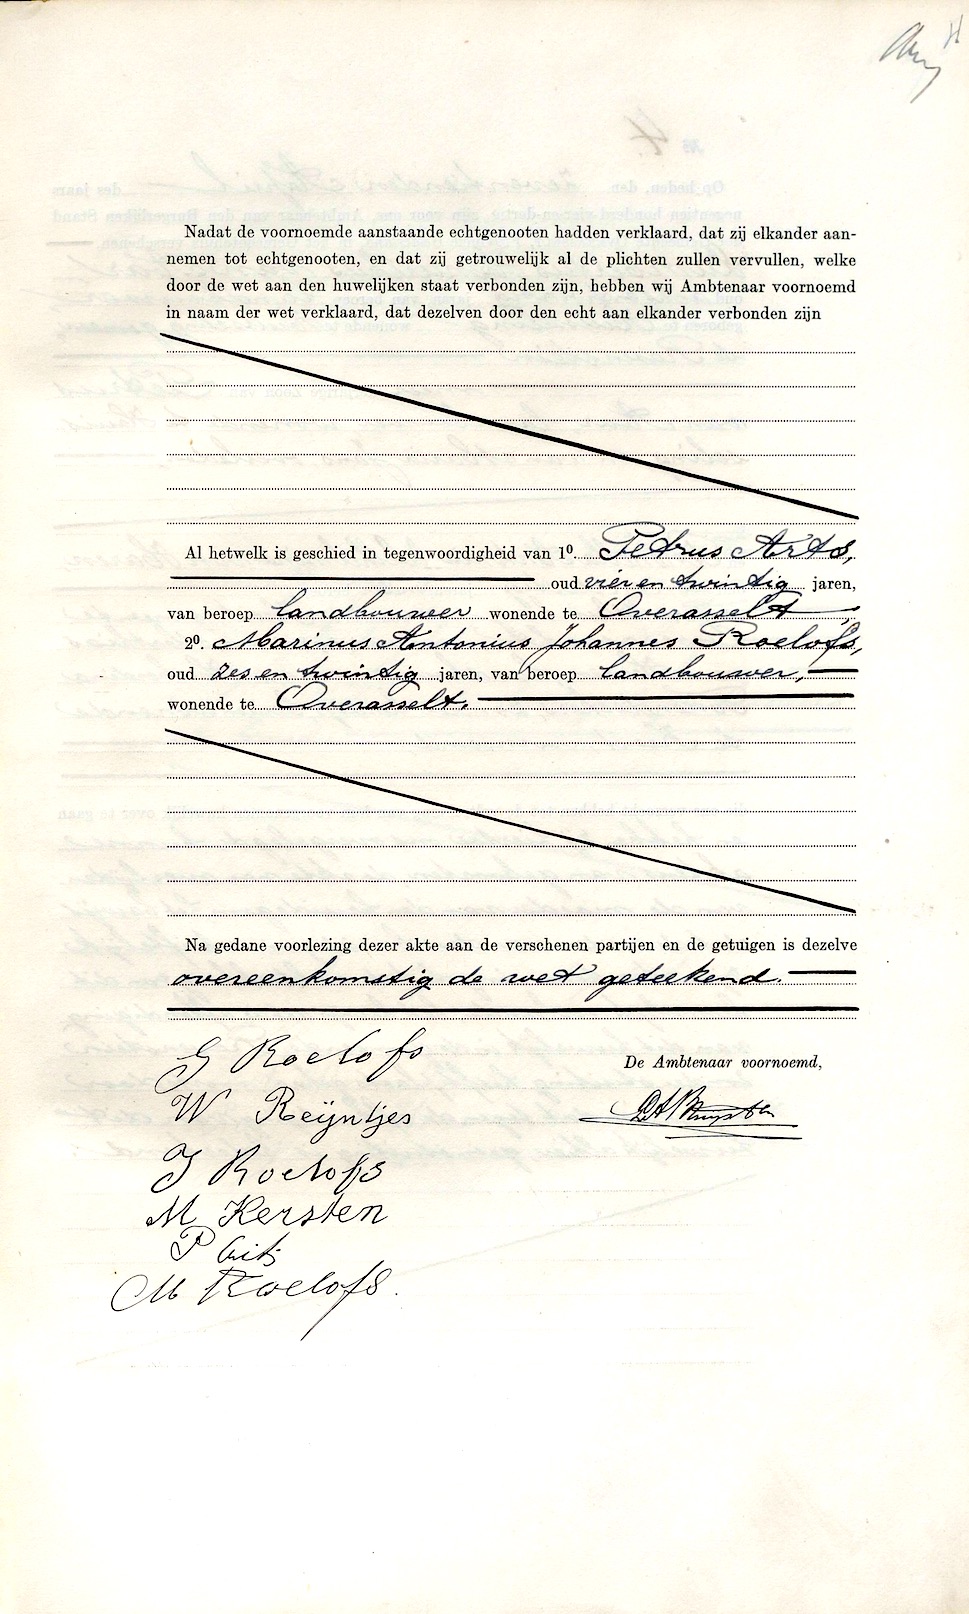 Nadat de voornoemde aanstaande echtgenooten hadden verklaard, dat zij elkander aan-
nemen tot echtgenooten, en dat zij getrouwelijk al de plichten zullen vervullen, welke
door de wet aan den huwelijken staat verbonden zijn, hebben wij Ambtenaar voornoemd
in naam der wet verklaard, dat dezelven door den echt aan elkander verbonden zijn
Al hetwelk is geschied in tegenwoordigheid van 1º. Petrus Arts,
oud vier en twintig jaren,
van beroep landbouwer wonende te Overasselt,
2º. Marinus Antonius Johannes Roelofs,
oud zes en twintig jaren, van beroep landbouwer,
wonende te Overasselt.
Na gedane voorlezing dezer akte aan de verschenen partijen en de getuigen is dezelve
overeenkomstig de wet geteekend.
G Roelofs
De Ambtenaar voornoemd,
W Reijntjes
J Roelofs
M Kersten
P Arts
M Roelofs.